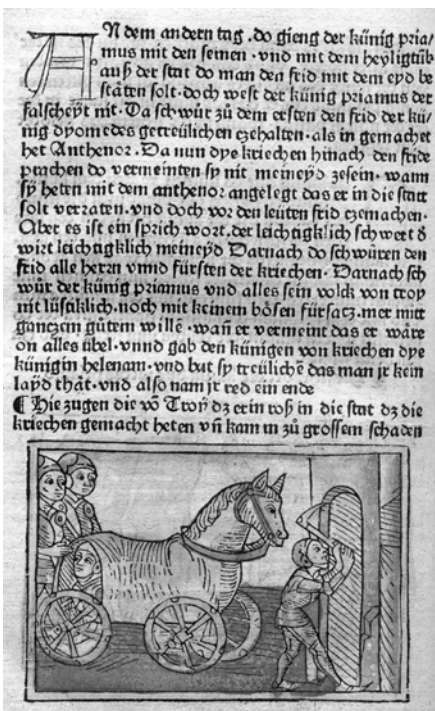 AN dem andern tag .do gieng der künig pria/
mus mit den seinen·vnd mit dem heyligtūb
auß der stat do man den frid mit dem eyd be
stäten solt·doch west der künig priamus der
falscheyt nit·Da schwůr zů dem ersten den frid der kü/
nig dyomedes getreülichen czehalten·als in gemachet
het Anthenor·Da nun dye kriechen hinach den fride
prachen do vermeinten sy nit meineyd zesein·wann
sy heten mit dem anthenor angelegt das er in die statt
solt verraten·vnd doch vor den leüten frid czemachen·
Aber es ist ein sprich wort·der leichtigklich schwert d̕
wirt leichtigklich meineyd Darnach do schwůren den
frid alle herrn vnnd fürsten der kriechen·Darnach sch
wůr der künig priamus vnd alles sein volck von troy
nit lüstiklich·noch mit keinem bösen fürsacz·mer mitt
ganczem gůtem wille͂·wan͂ er vermeint das er wäre
on alles übel·vnnd gab den künigen von kriechen dye
künigin helenam·vnd but sy treüliche͂ das man jr kein
layd thät·vnd also nam jr red ein ende
¶ Hie zugen die vo͂ Troy dz erin roß in die stat dz die
kriechen gemacht heten vn͂ kam in zů grossem schaden